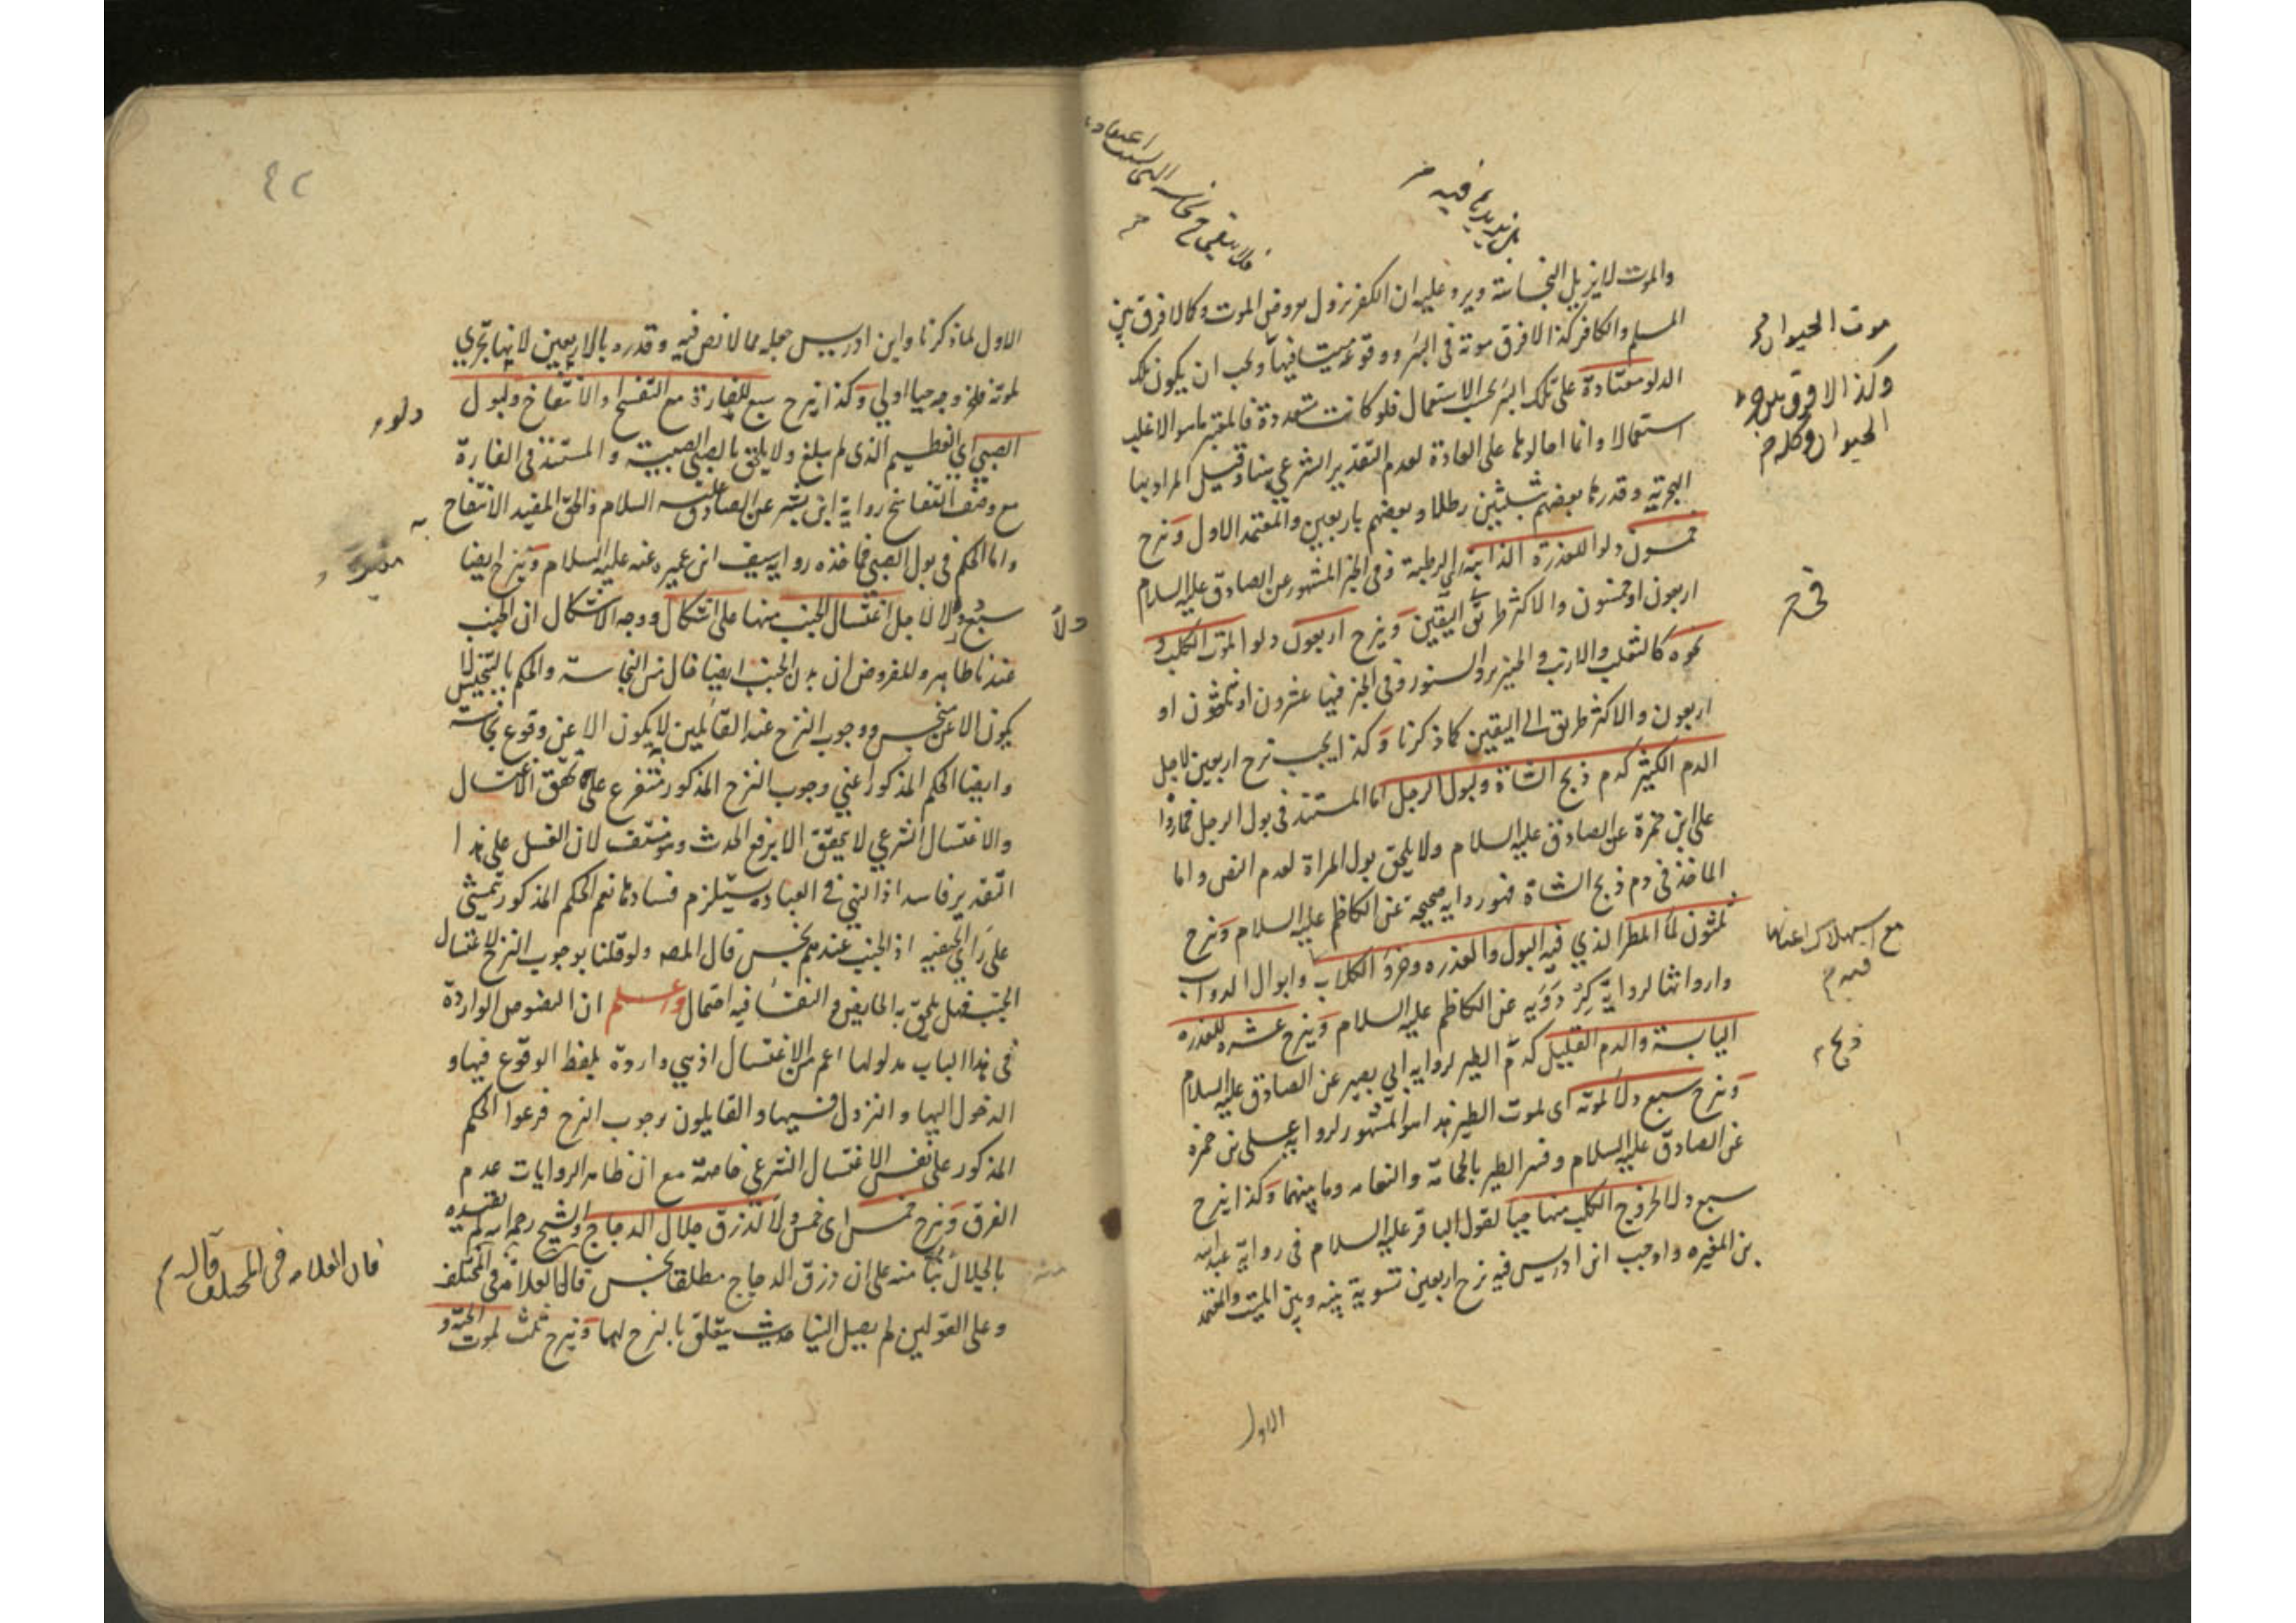 والموت لا يزيل النجاسة ويرد عليه ان الكفر يزول بعروض الموت وكما لا فرق بين
المسلم والكافر كذا لا فرق موته في البئر ووقوعه ميتا فيها ويجب ان يكون تلك
الدلو معتادة على تلك البئر بحسب الاستعمال فلو كانت متعددة فالمعتبر ما هو الاغلب
استعمالا وانما احالوها على العادة لعدم التقدير الشرعي هنا وقيل المراد بها
الهجرية وقدرها بعضهم بثلثين رطلا وبعضهم باربعين والمعتمد الاول وَنزح
خمسون دلوا للعذرة الذائبة اي الرطبة وفي الخبر المشهور عن الصادق عليه السلام
اربعون او خمسون والاكثر طريق اليقين وَينزح اربعون دلوا لموت الكلب و
نحوه كالثعلب والارنب والخنزير والسنور وفي الخبر فيها عشرون او ثلثون او
اربعون والاكثر طريق الى اليقين كما ذكرنا وَكذا يجب نزح اربعين لاجل
الدم الكثير كدم ذبح الشاة وبول الرجل اما المستند في بول الرجل فما رواه
علي بن حمزة عن الصادق عليه السلام ولا يلحق بول المراة لعدم النص واما
الماخذ في دم ذبح الشاة فهو رواية صحيحة عن الكاظم عليه السلام وَنزح
ثلثون لماء المطر الذي فيه البول والعذره وخرؤ الكلاب وابوال الدواب
وارواثها لرواية كردويه عن الكاظم عليه السلام وَينزح عشره للعذره
اليابسة والدم القليل كدم الطير لرواية ابي بصير عن الصادق عليه السلام
وَنزح سبع دلاء لموته اي لموت الطير هذا هو المشهور لرواية علي بن حمزه
عن الصادق عليه السلام وفسر الطير بالحمامة والنعامه وما بينهما وَكذا ينزح
سبع دلاء لخروج الكلب منها حيا لقول الباقر عليه السلام في رواية عبد الله
بن المغيره واوجب ابن ادريس فيه نزح اربعين تسوية بينه وبين الميت والمعتمد
موت الحيوان
وكذا لا فرق بين
الحيوان وكله
في
مع استهلاك اعيانها
فيه م
ذبح
الاول
٤٢
الاول لما ذكرنا وابن ادريس جعله مما لا نص فيه وقدره بالاربعين لانها تجزي
لموته فلخروجه حيا اولي وَكذا ينزح سبع للفارة مع التفسخ والانتفاخ ولبول
الصبي اي الفطيم الذي لم يبلغ ولا يلحق بالصبي الصبية والمستند في الفارة
مع وصف التفاسخ رواية ابن عن الصادق عليه السلام والحق المفيد الانتفاخ
واما الحكم في بول الصبي فماخذه رواية سيف ابن عميره عنه عليه السلام وَينزح ايضا
سبع دلاء لاجل اغتسال الجنب منها على اشكال ووجه الاشكال ان الجنب
عندنا طاهر والمفروض ان بدن الجنب ايضا خال من النجاسة والحكم بالتنجيس لا
يكون الا عن نجس ووجوب النزح عند القائلين لا يكون الا عن وقوع نجاسة
وايضا الحكم المذكور اعني وجوب النزح المذكور متفرع على تحقق الاغتسال
والاغتسال الشرعي لا يتحقق الا برفع الحدث وهو منتف لان الغسل على هذا
التقدير فاسد اذ النهي في العبادة يستلزم فسادها نعم الحكم المذكور يتمشى
على راي الحنفيه اذ الجنب عندهم نجس قال المصه ولو قلنا بوجوب النزح لاغتسال
الجنب فهل يلحق به الحايض والنفساء فيه احتمال واعلم ان النصوص الواردة
في هذا الباب مدلولها اعم من الاغتسال اذ هي واردة بلفظ الوقوع فيها و
الدخول اليها والنزول فيها والقايلون بوجوب النزح فرعوا الحكم
المذكور على نفس الاغتسال الشرعي خاصة مع ان ظاهر الروايات عدم
الفرق وَنزح خمس اي خمس دلاء لذرق جلال الدجاج والشيخ رحمه الله لم يقيده
بالجلال بناء منه على ان ذرق الدجاج مطلقا نجس قال العلامة في المختلف
وعلى القولين لم يصل الينا حديث يتعلق بالنزح لهما وَينزح ثلث لموت الحية و
دلو
به
دلاء
قال العلامه في المختلف